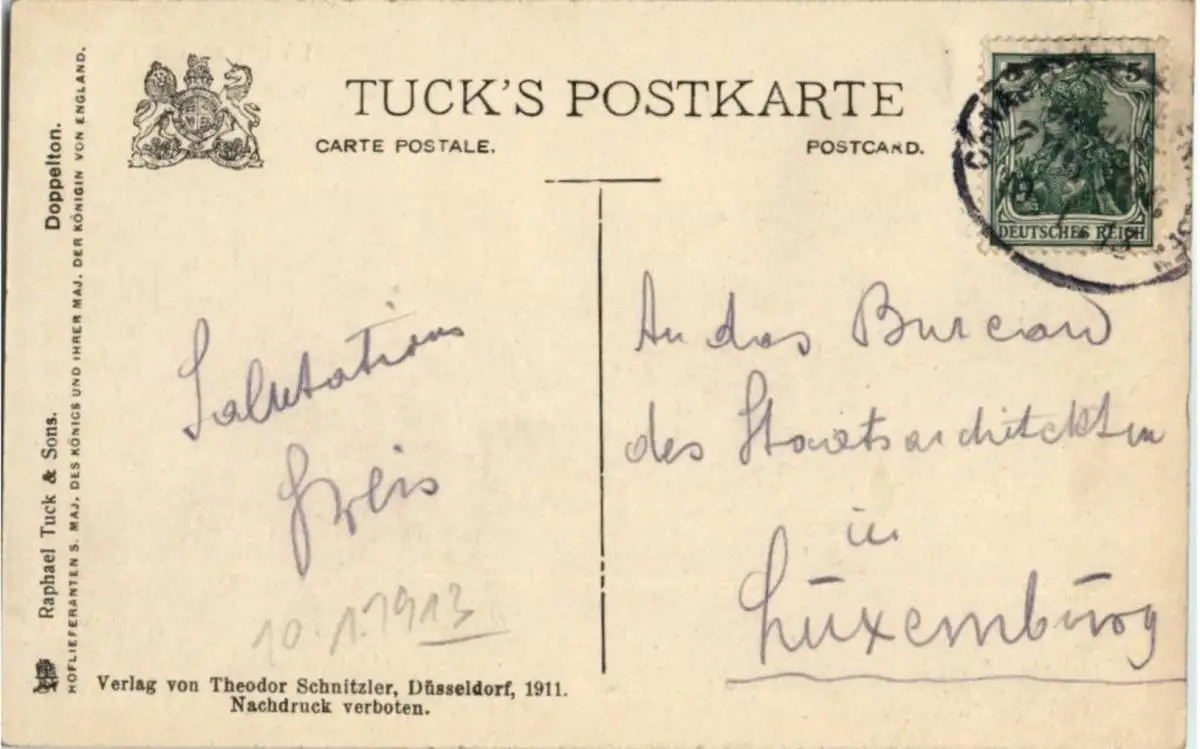 TUCK'S POSTKARTE
CARTE POSTALE.
POSTCARD.
5
DEUTSCHES REICH
Raphael Tuck & Sons. Doppelton.
HOFLIEFERANTEN S. MAJ. DES KÖNIGS UND IHRER MAJ. DER KÖNIGIN VON ENGLAND.
Salutations
10.1.1913
An das Bureau
des Staatsarchitekten
in
Luxemburg
Verlag von Theodor Schnitzler, Düsseldorf, 1911.
Nachdruck verboten.